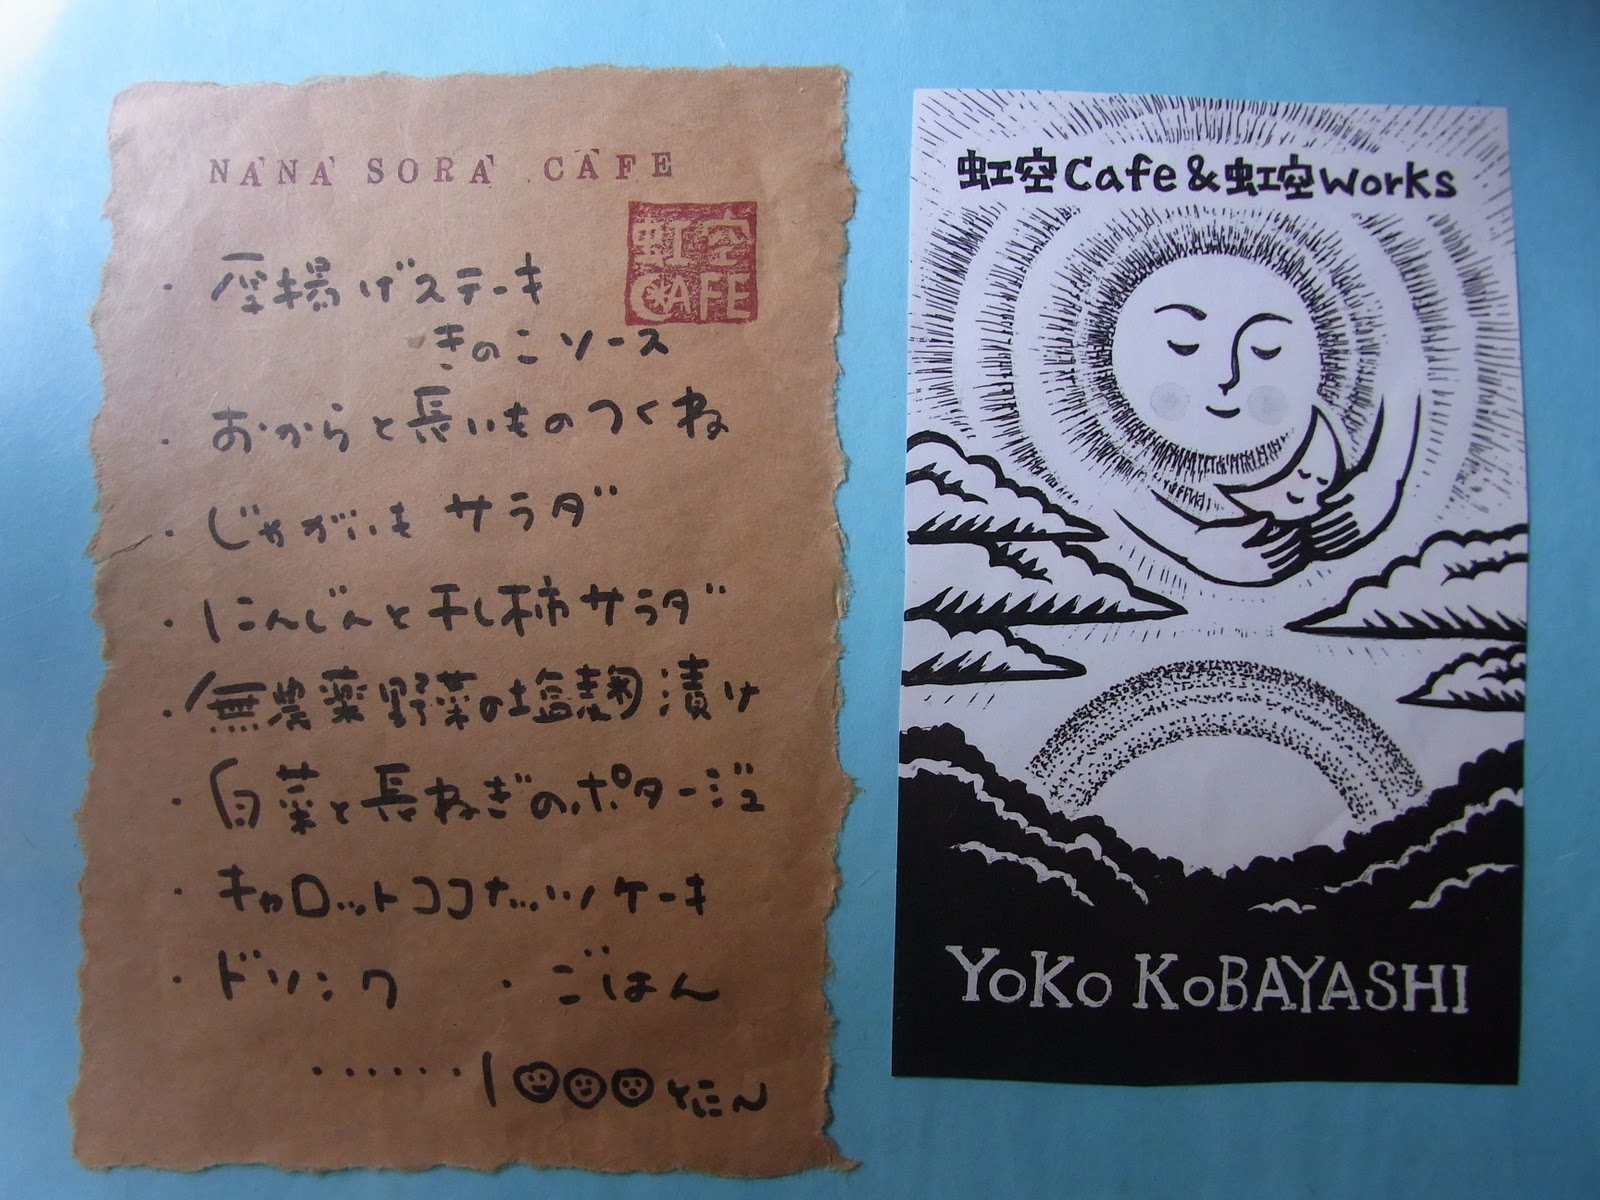 NANA SORA CAFE
虹空
CAFE
・厚揚げステーキ
きのこソース
・おからと長いものつくね
・じゃがいもサラダ
・にんじんと干し柿サラダ
・無農薬野菜の塩麹漬け
・白菜と長ねぎのポタージュ
・キャロットココナッツケーキ
・ドリンク ・ごはん
・・・・・・1000とにん
虹空Cafe&虹空works
YOKO KOBAYASHI